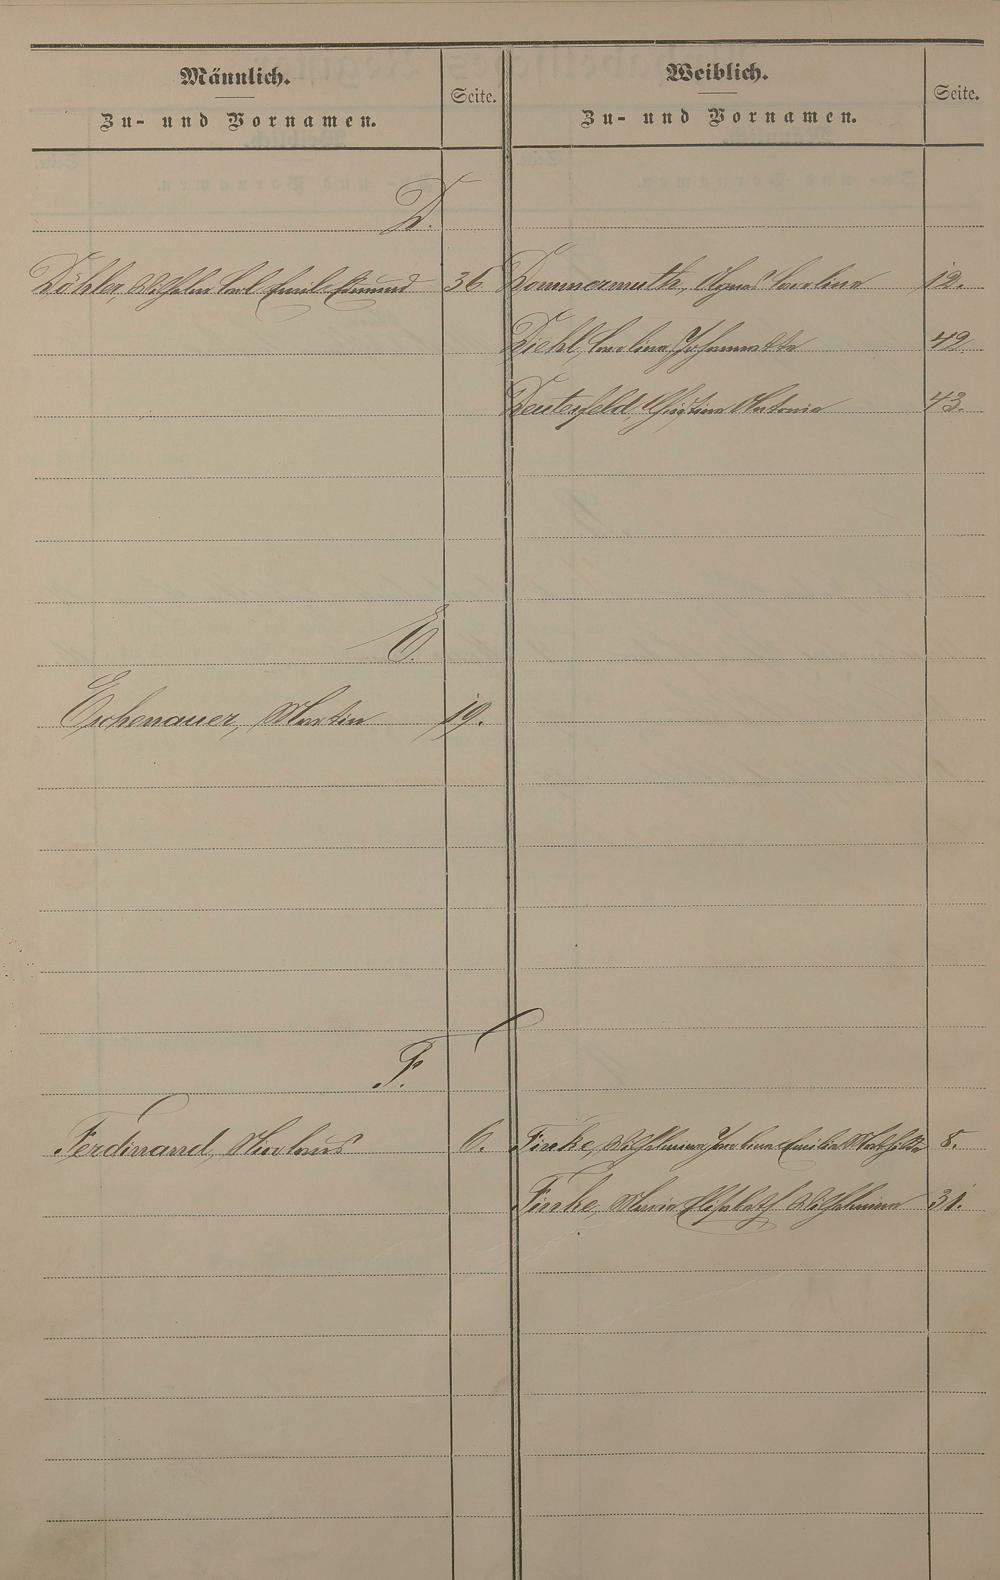 Männlich.
Zu- und Vornamen.
Seite.
Weiblich.
Zu- und Vornamen.
Seite.
D.
Döhler, Wilhelm Carl Emil Edmund 36
Dommermuth, Agnes Carolina 12.
Diehl, Carolina Johannetta 42.
Deuterfeld, Christina Antonia 43.
E.
Eschenauer, Martin 19.
F.
Ferdinand, Nicolaus 6.
Finke, Wilhelmina Carolina Emilia Mathilda 8.
Finke, Maria Elisabeth Wilhelmina 31.